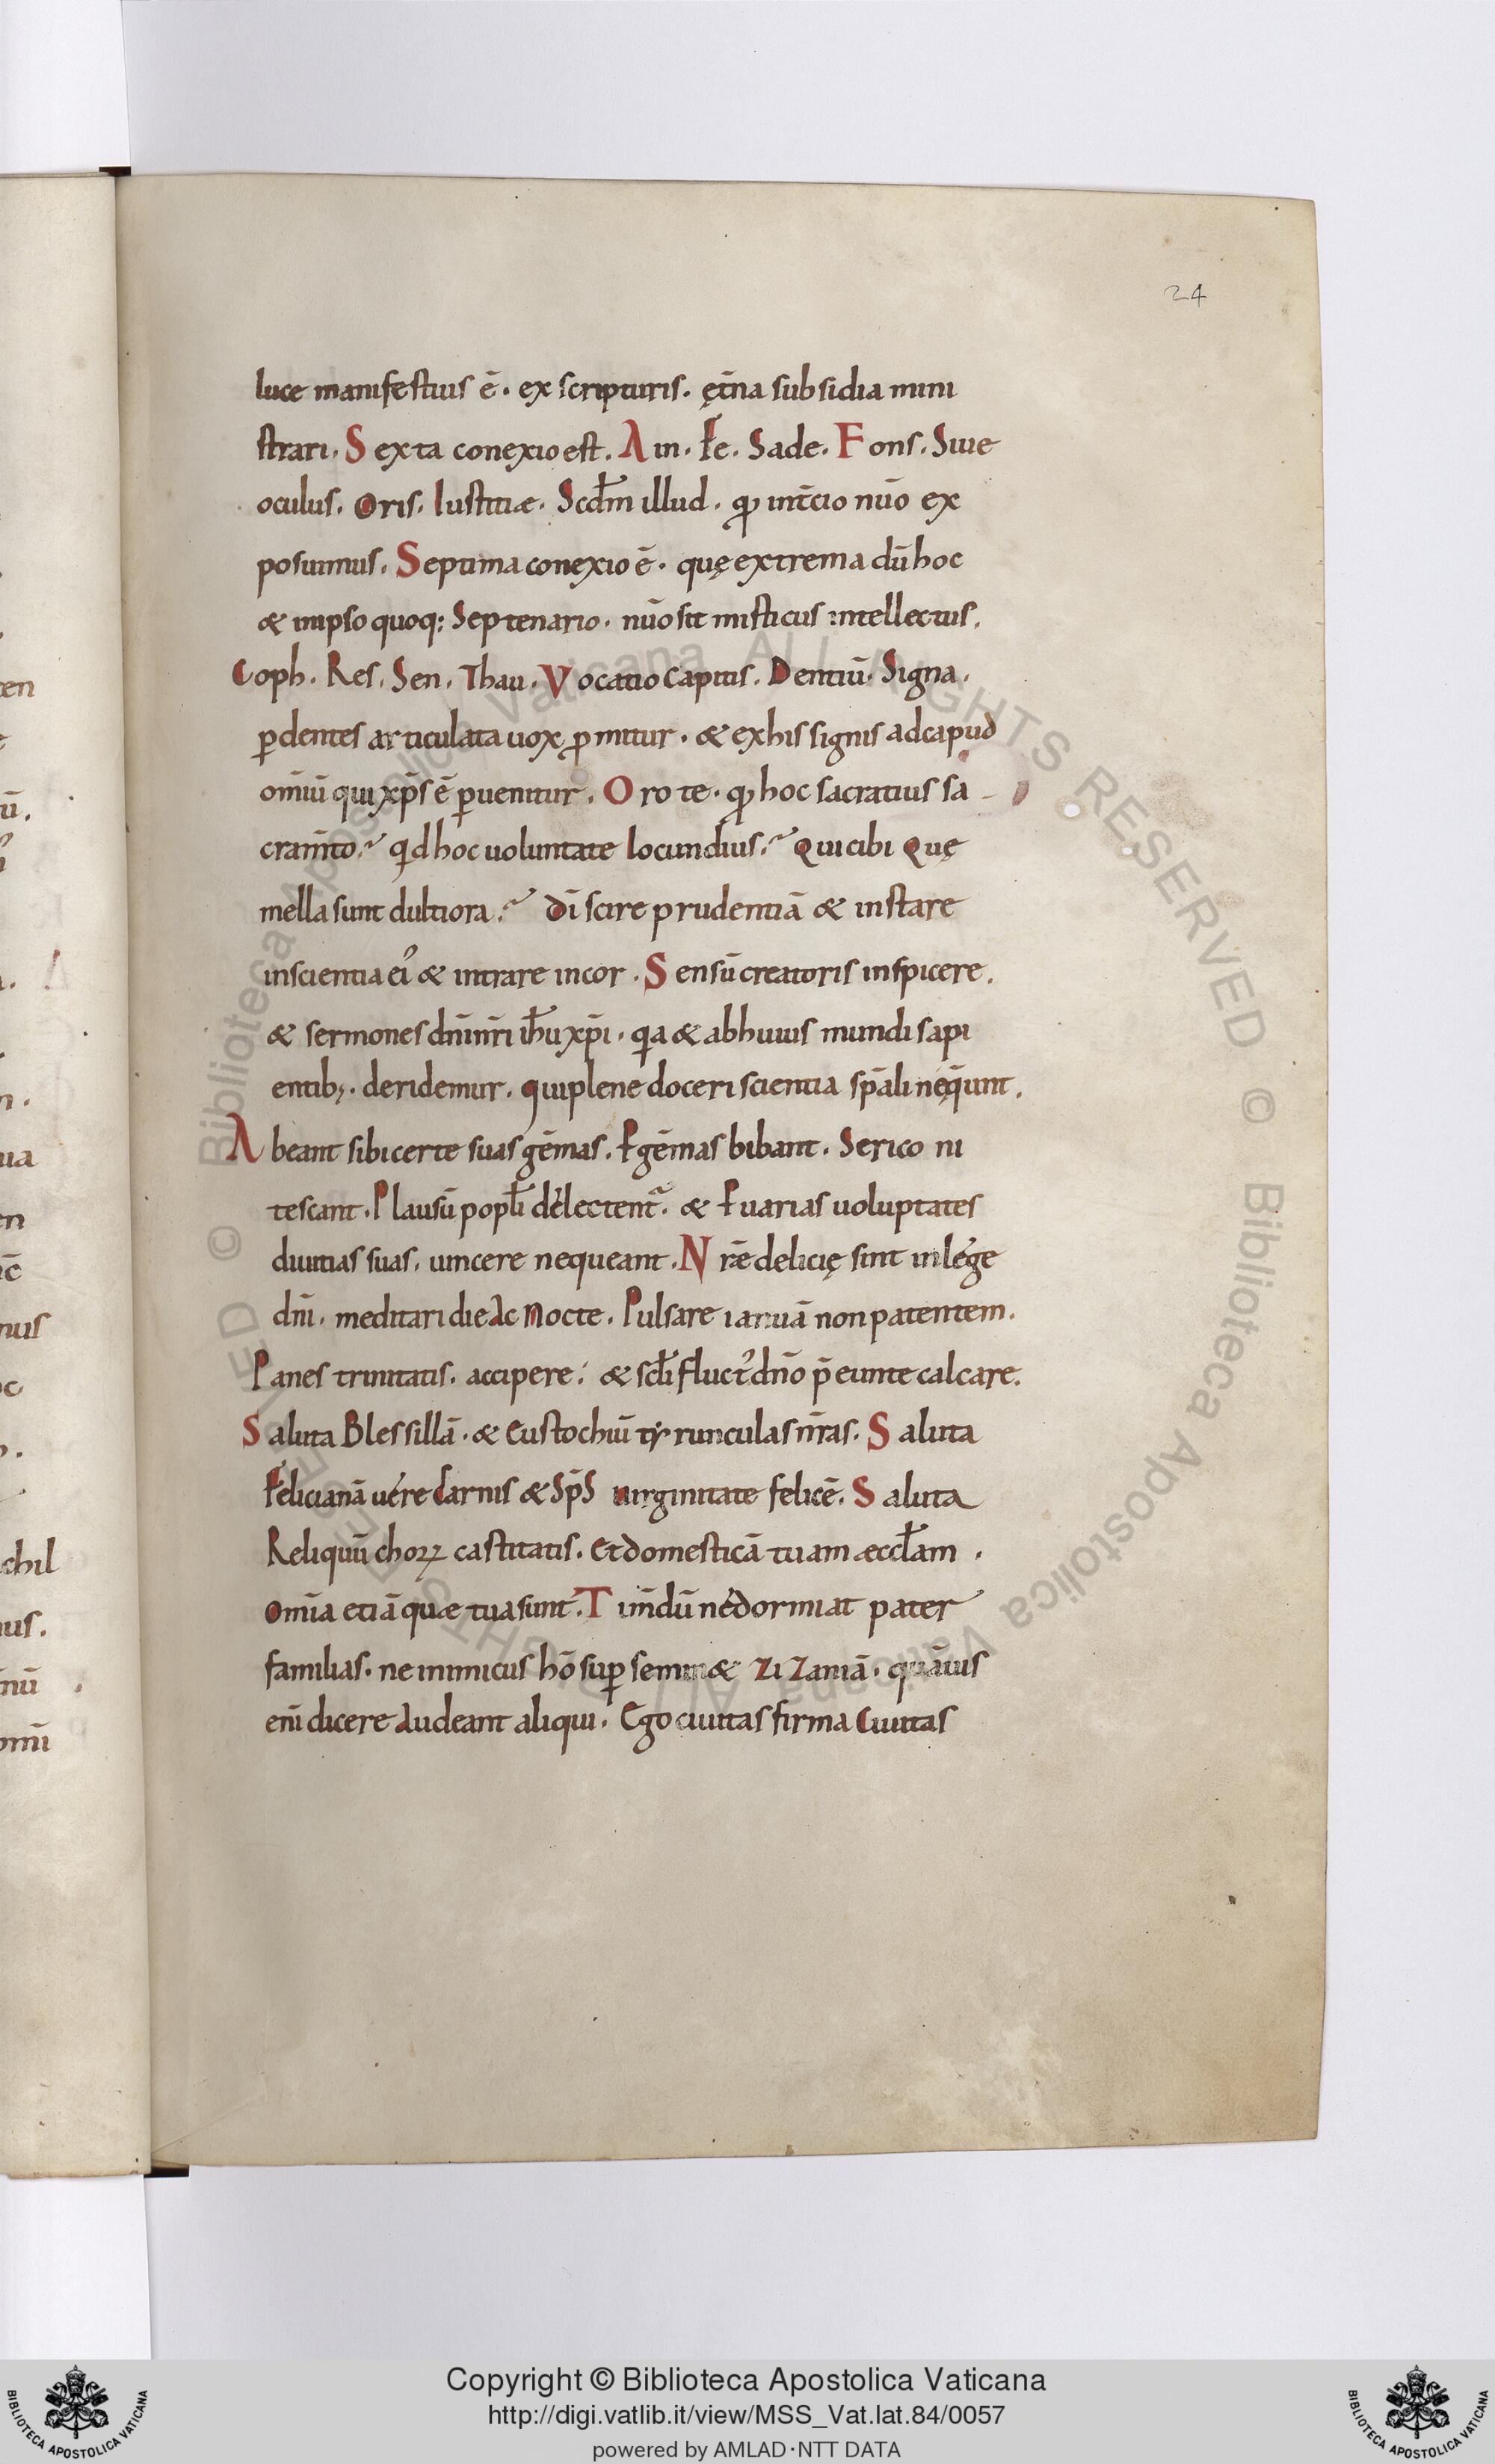 24
luce manifestius ē. ex scripturis. ęt̄na subsidia mini
strari. Sexta conexio est. Ain. Fe. Sade. Fons. Siue
oculus. Oris. Iustitiæ. Scdm̄ illud. qđ int̄cio nūo ex
posuimus. Septima conexio ē. quę extrema dū hoc
& inipso quoq: Septenario. nūo sit misticus intellectus.
Coph. Res. Sen. Thau. Vocatio Capitis. Dentiū. Signa.
ꝑ dentes articulata uox ꝓmitur. & exhis signis adcapud
om̄iū qui xp̄s ē ꝑuenitur. Oro te. qđ hoc sacratius sa
cram̄to? qđ hoc uoluntate Iocundius? Qui cibi Quę
mella sunt dultiora? Dī scire prudentiā & instare
inscientia ei᾽ & intrare incor. Sensū creatoris inspicere.
& sermones dn̄i nr̄i ih̄u xp̄i. qia & abhuius mundi sapi
entib;. deridemur. quiplene doceri scientia sp̄ali neq̄unt.
Abeant sibi certe suas gēmas. & gēmas bibant. Serico ni
tescant. Plausū popłi delectent᷑. & & uarias uoluptates
diuitias suas. uincere nequeant. Nr̄e delicię sint inlege
dn̄i. meditari die Ac Nocte. Pulsare ianuā non patentem.
Panes trinitatis. accipere. & scłi fluct᾽ dn̄o p̄eunte calcare.
Saluta Blessillā. & Eustochiū tyrunculas nr̄as. Saluta
Felicianā uere Carnis & Sp̄s uirginitate felicē. Saluta
Reliquū choꝝ castitatis. Et domesticā tuam æccłam.
Om̄ia etiā quæ tua sunt. Tim̄dū ne dormiat pater
familias. ne inimicus hō suꝑ semin& ZiZaniā. quāuis
eni᷑ dicere Audeant aliqui. Ego ciuitas firma Ciuitas
Copyright © Biblioteca Apostolica Vaticana
http://digi.vatlib.it/view/MSS_Vat.lat.84/0057
powered by AMLAD·NTT DATA
BIBLIOTECA APOSTOLICA VATICANA
BIBLIOTECA APOSTOLICA VATICANA